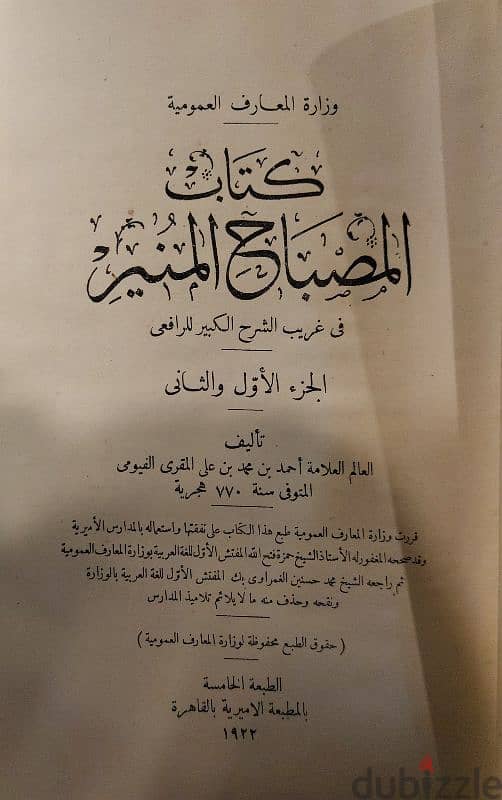 وزارة المعارف العمومية
كتاب
المصباح المنير
فى غريب الشرح الكبير للرافعى
الجزء الأوّل والثانى
تأليف
العالم العلامة أحمد بن محمد بن على المقرى الفيومى
المتوفى سنة ٧٧٠ هجرية
قررت وزارة المعارف العمومية طبع هذا الكتاب على نفقتها واستعماله بالمدارس الأميرية
وقد صححه المغفور له الأستاذ الشيخ حمزة فتح الله المفتش الأوّل للغة العربية بوزارة المعارف العمومية
ثم راجعه الشيخ محمد حسنين الغمراوى بك المفتش الأوّل للغة العربية بالوزارة
ونقحه وحذف منه ما لا يلائم تلاميذ المدارس
( حقوق الطبع محفوظة لوزارة المعارف العمومية )
الطبعة الخامسة
بالمطبعة الاميرية بالقاهرة
١٩٢٢
dubizzle